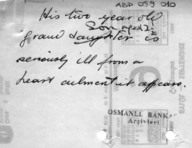 ABD 059 010
His two year old
Grand daughter is
seriously ill from a
heart ailment it appears.
OSMANLI BANKASI